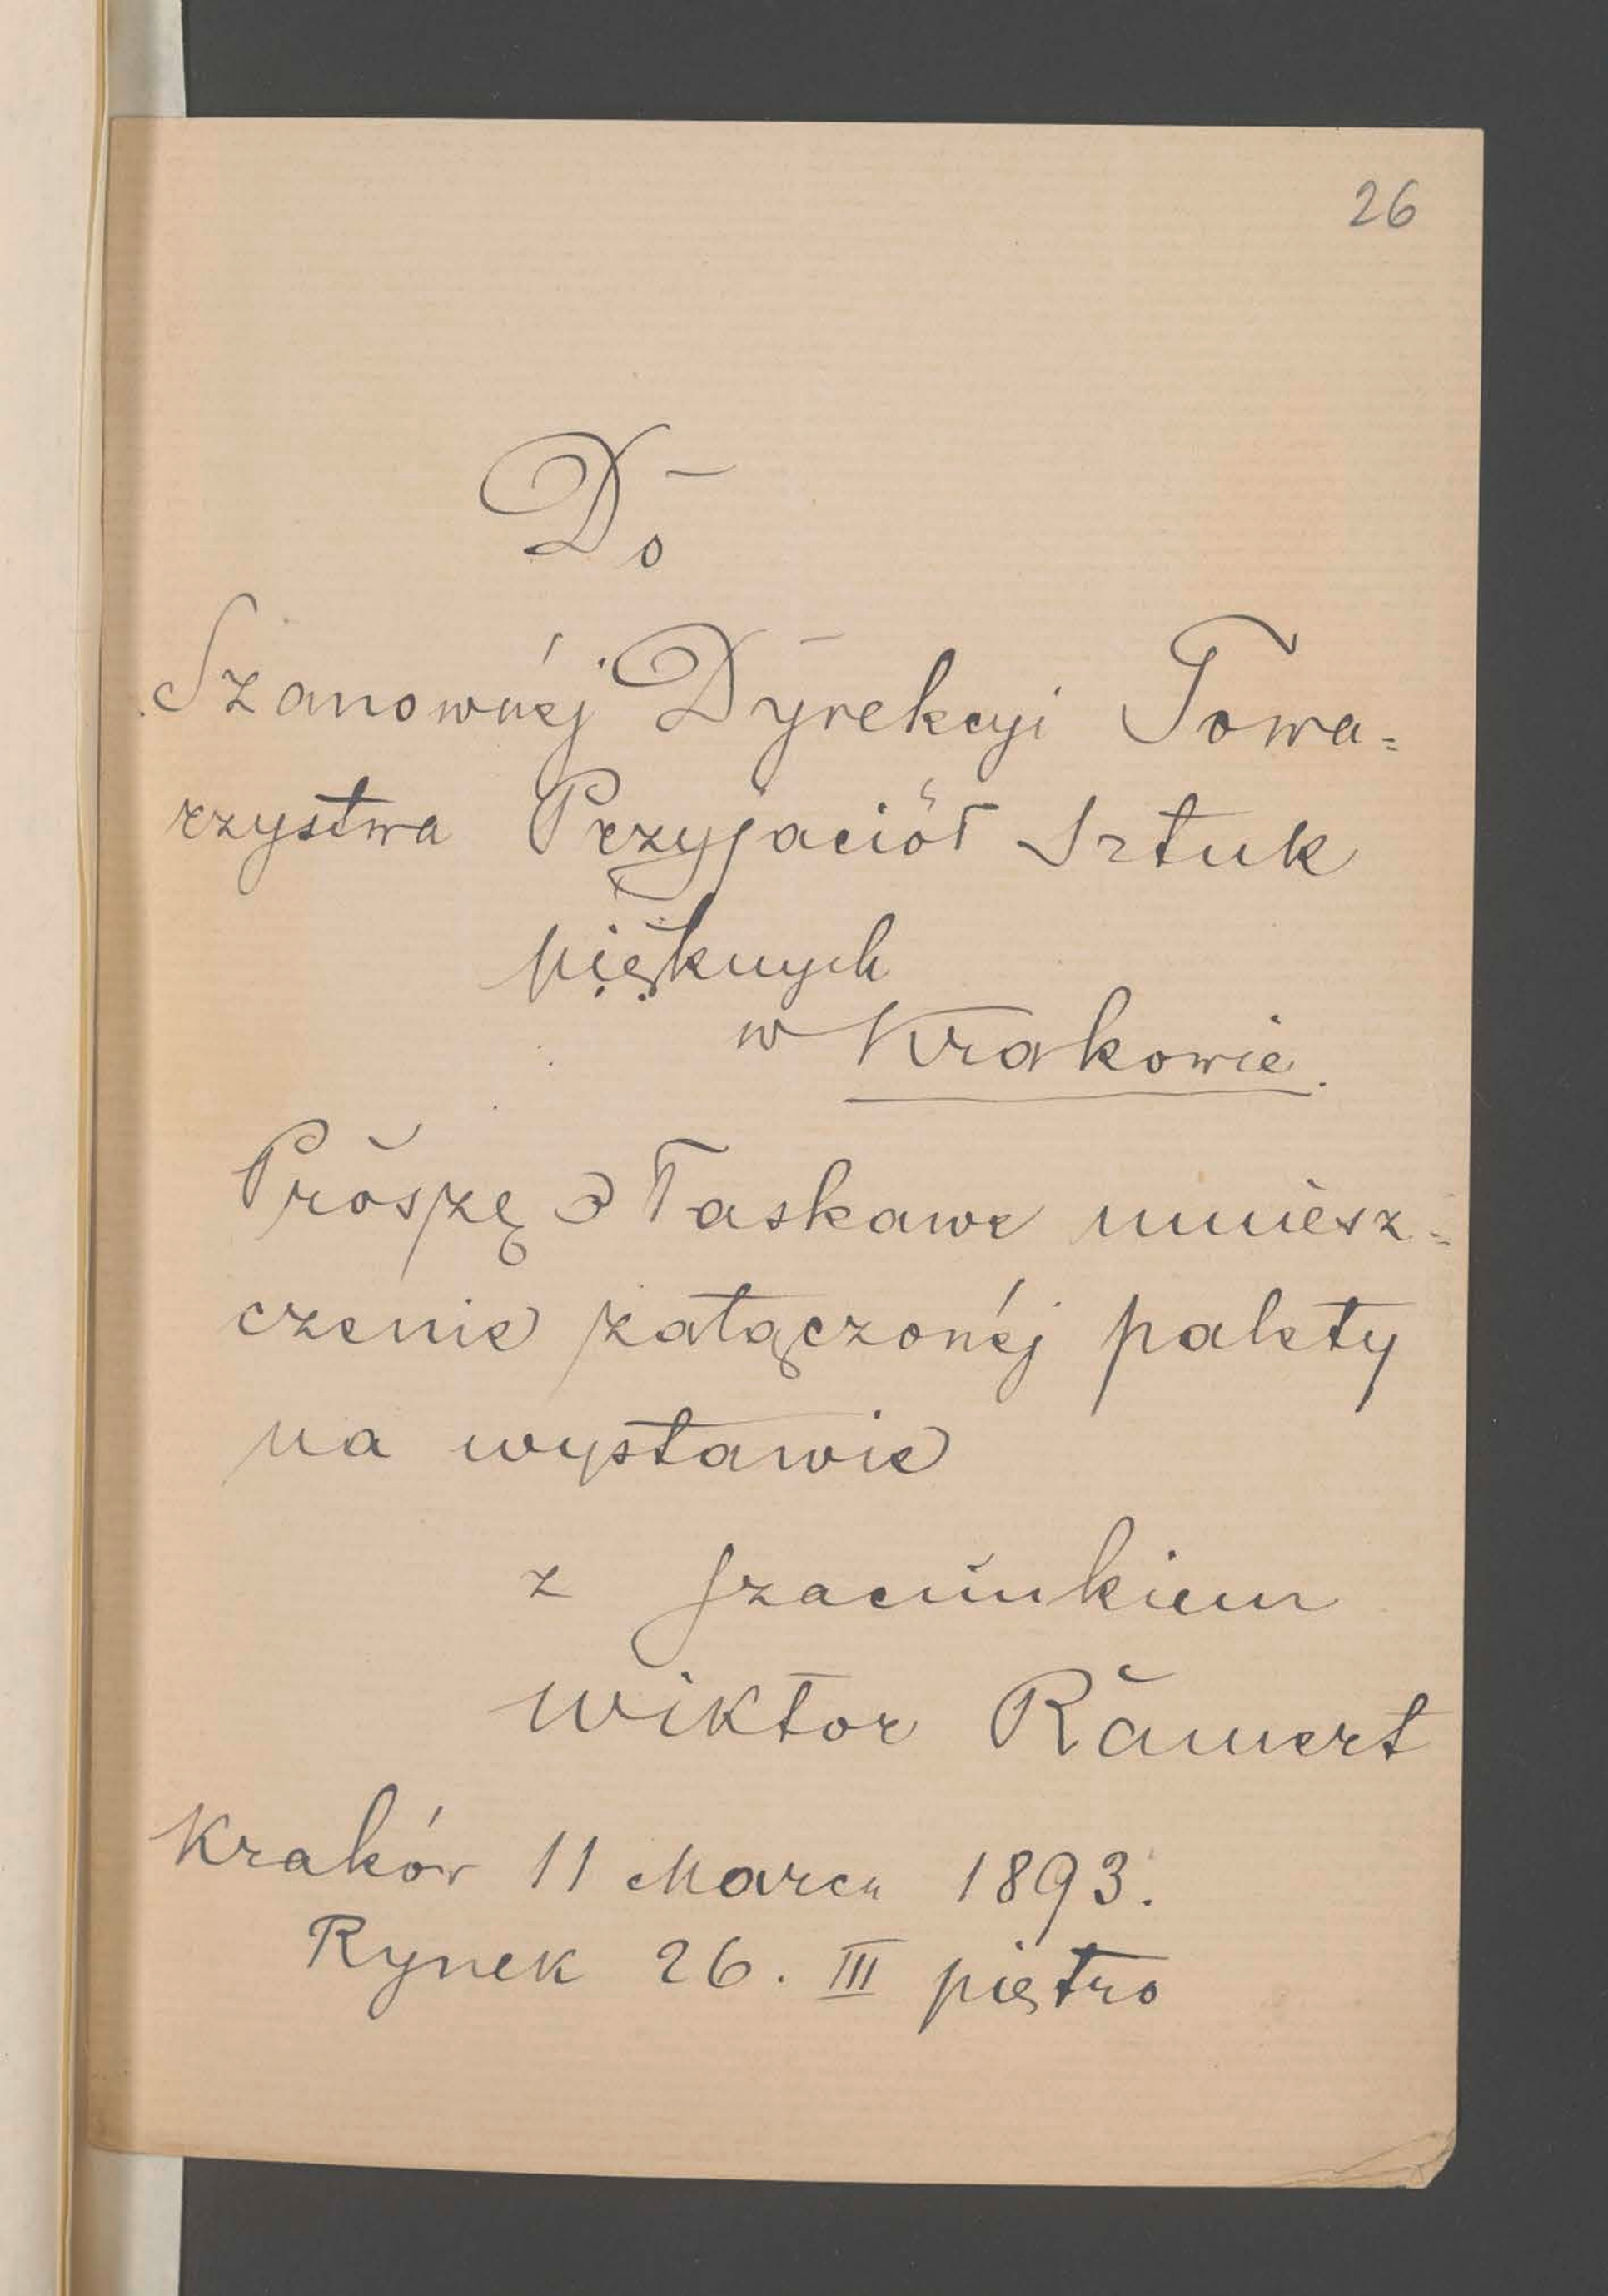 26
Do
Szanownéj Dyrekcyi Towa=
rzystwa Przyjaciół Sztuk
pięknych
w Krakowie.
Proszę o łaskawe umiesz=
czenie załączonéj palety
na wystawie
z szacunkiem
Wiktor Ramert
Kraków 11 Marca 1893.
Rynek 26. III piętro